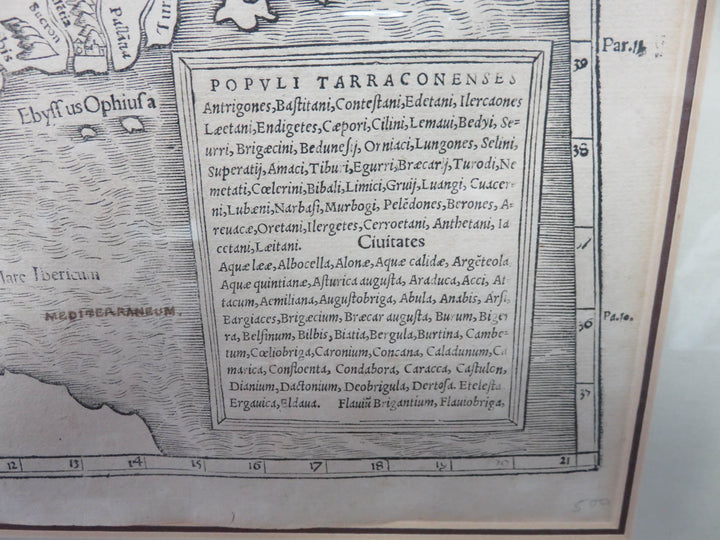 Palãna
Ebyssus Ophiusa
POPVLI TARRACONENSES
Antrigones, Bastitani, Contestani, Edetani, Ilercaones
Læetani, Endigetes, Cæpori, Cilini, Lemaui, Bedyi, Se-
urri, Brigæcini, Bedunesij, Orniaci, Lungones, Selini,
Superatij, Amaci, Tiburi, Egurri, Bræcarij, Turodi, Ne
metati, Cœlerini, Bibali, Limici, Gruij, Luangi, Cuacer-
ni, Lubæni, Narbasi, Murbogi, Pelẽdones, Berones, A-
reuacæ, Oretani, Ilergetes, Cerroetani, Anthetani, Ia
cctani, Læitani. Ciuitates
Aquæ lææ, Albocella, Alonæ, Aquæ calidæ, Argẽteola
Aquæ quintianæ, Asturica augusta, Araduca, Acci, At
tacum, Aemiliana, Augustobriga, Abula, Anabis, Arsi,
Eargiaces, Brigæcium, Bræcar augusta, Burum, Biger
ra, Belsinum, Bilbis, Biatia, Bergula, Burtina, Cambe-
tum, Cœliobriga, Caronium, Concana, Caladunum, Ca
marica, Consloenta, Condabora, Caracca, Castulon,
Dianium, Dactonium, Deobrigula, Dertosa. Etelesta
Ergauica, Eldaua. Flauiũ Brigantium, Flauiobriga,
Mare Ibericum
MEDITERRANEUM.
Par. 11
39
38
36
Pa. 10.
37
12 13 14 15 16 17 18 19 20 21
500